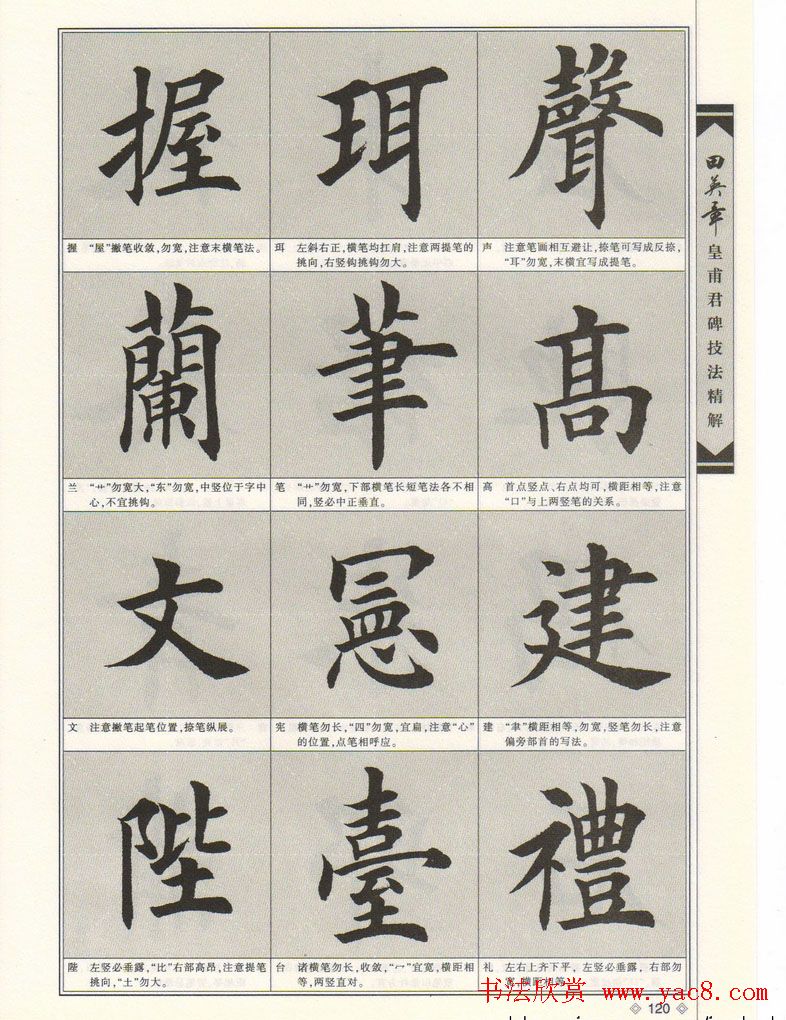 握 珥 聲
握 “屋”撇笔收敛,勿宽,注意末横笔法。
珥 左斜右正,横笔均扛肩,注意两提笔的
挑向,右竖钩挑钩勿大。
声 注意笔画相互避让,捺笔可写成反捺,
“耳”勿宽,末横宜写成提笔。
蘭 筆 高
兰 “艹”勿宽大,“东”勿宽,中竖位于字中
心,不宜挑钩。
笔 “艹”勿宽,下部横笔长短笔法各不相
同,竖必中正垂直。
高 首点竖点、右点均可,横距相等,注意
“口”与上两竖笔的关系。
文 憲 建
文 注意撇笔起笔位置,捺笔纵展。
宪 横笔勿长,“四”勿宽,宜扁,注意“心”
的位置,点笔相呼应。
建 “聿”横距相等,勿宽,竖笔勿长,注意
偏旁部首的写法。
陛 臺 禮
陛 左竖必垂露,“比”右部高昂,注意提笔
挑向,“土”勿大。
台 诸横笔勿长,收敛,“冖”宜宽,横距相
等,两竖直对。
礼 左右上齐下平,左竖必垂露,右部勿
宽,横距相等。
田英章 皇甫君碑技法精解
书法欣赏 www.yac8.com
120